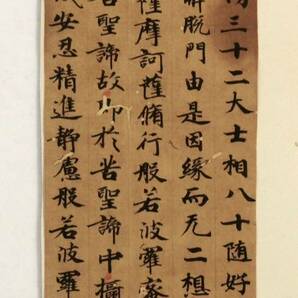 三十二大士相八十随好
解脱門由是因縁而无二想
薩摩訶薩脩行般若波羅蜜
苦聖諦故即於苦聖諦中攝
安忍精進静慮般若波羅